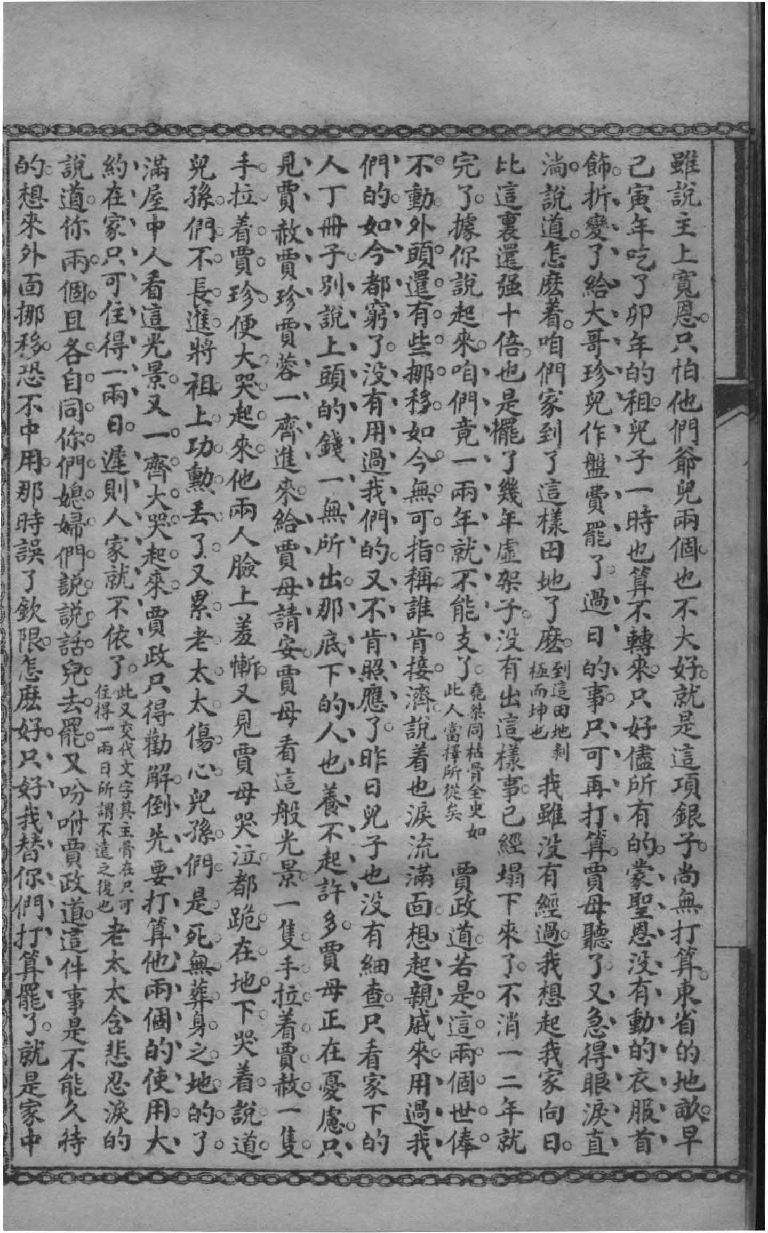 雖說主上寬恩只怕他們爺兒兩個也不大好就是這項銀子尚無打算東省的地畝早
己寅年吃了卯年的租兒子一時也算不轉來只好儘所有的蒙聖恩没有動的衣服首
飾折變了給大哥珍兒作盤費罷了過日的事只可再打算賈母聽了又急得眼淚直
淌說道怎麽着咱們家到了這樣田地了麽到這田地剥極而坤也我雖没有經過我想起我家向日
比這裏還强十倍也是擺了幾年虚架子没有出這樣事已經塌下來了不消一二年就
完了據你說起來咱們竟一兩年就不能支了堯桀同枯骨全史如此人當擇所從矣賈政道若是這兩個世俸
不動外頭還有些挪移如今無可指稱誰肯接濟說着也淚流滿面想起親戚來用過我
們的如今都窮了没有用過我們的又不肯照應了昨日兒子也没有細查只看家下的
人丁冊子别說上頭的錢一無所出那底下的人也養不起許多賈母正在憂慮只
見賈赦賈珍賈蓉一齊進來給賈母請安賈母看這般光景一隻手拉着賈赦一隻
手拉着賈珍便大哭起來他兩人臉上羞慚又見賈母哭泣都跪在地下哭着說道
兒孫們不長進將祖上功勳丢了又累老太太傷心兒孫們是死無葬身之地的了
滿屋中人看這光景又一齊大哭起來賈政只得勸解倒先要打算他兩個的使用大
約在家只可住得一兩日遲則人家就不依了此又交代文字真主骨在只可住得一兩日所謂不遠之復也老太太含悲忍淚的
說道你兩個且各自同你們媳婦們説説話兒去罷又吩咐賈政道這件事是不能久待
的想來外面挪移恐不中用那時誤了欽限怎麽好只好我替你們打算罷了就是家中